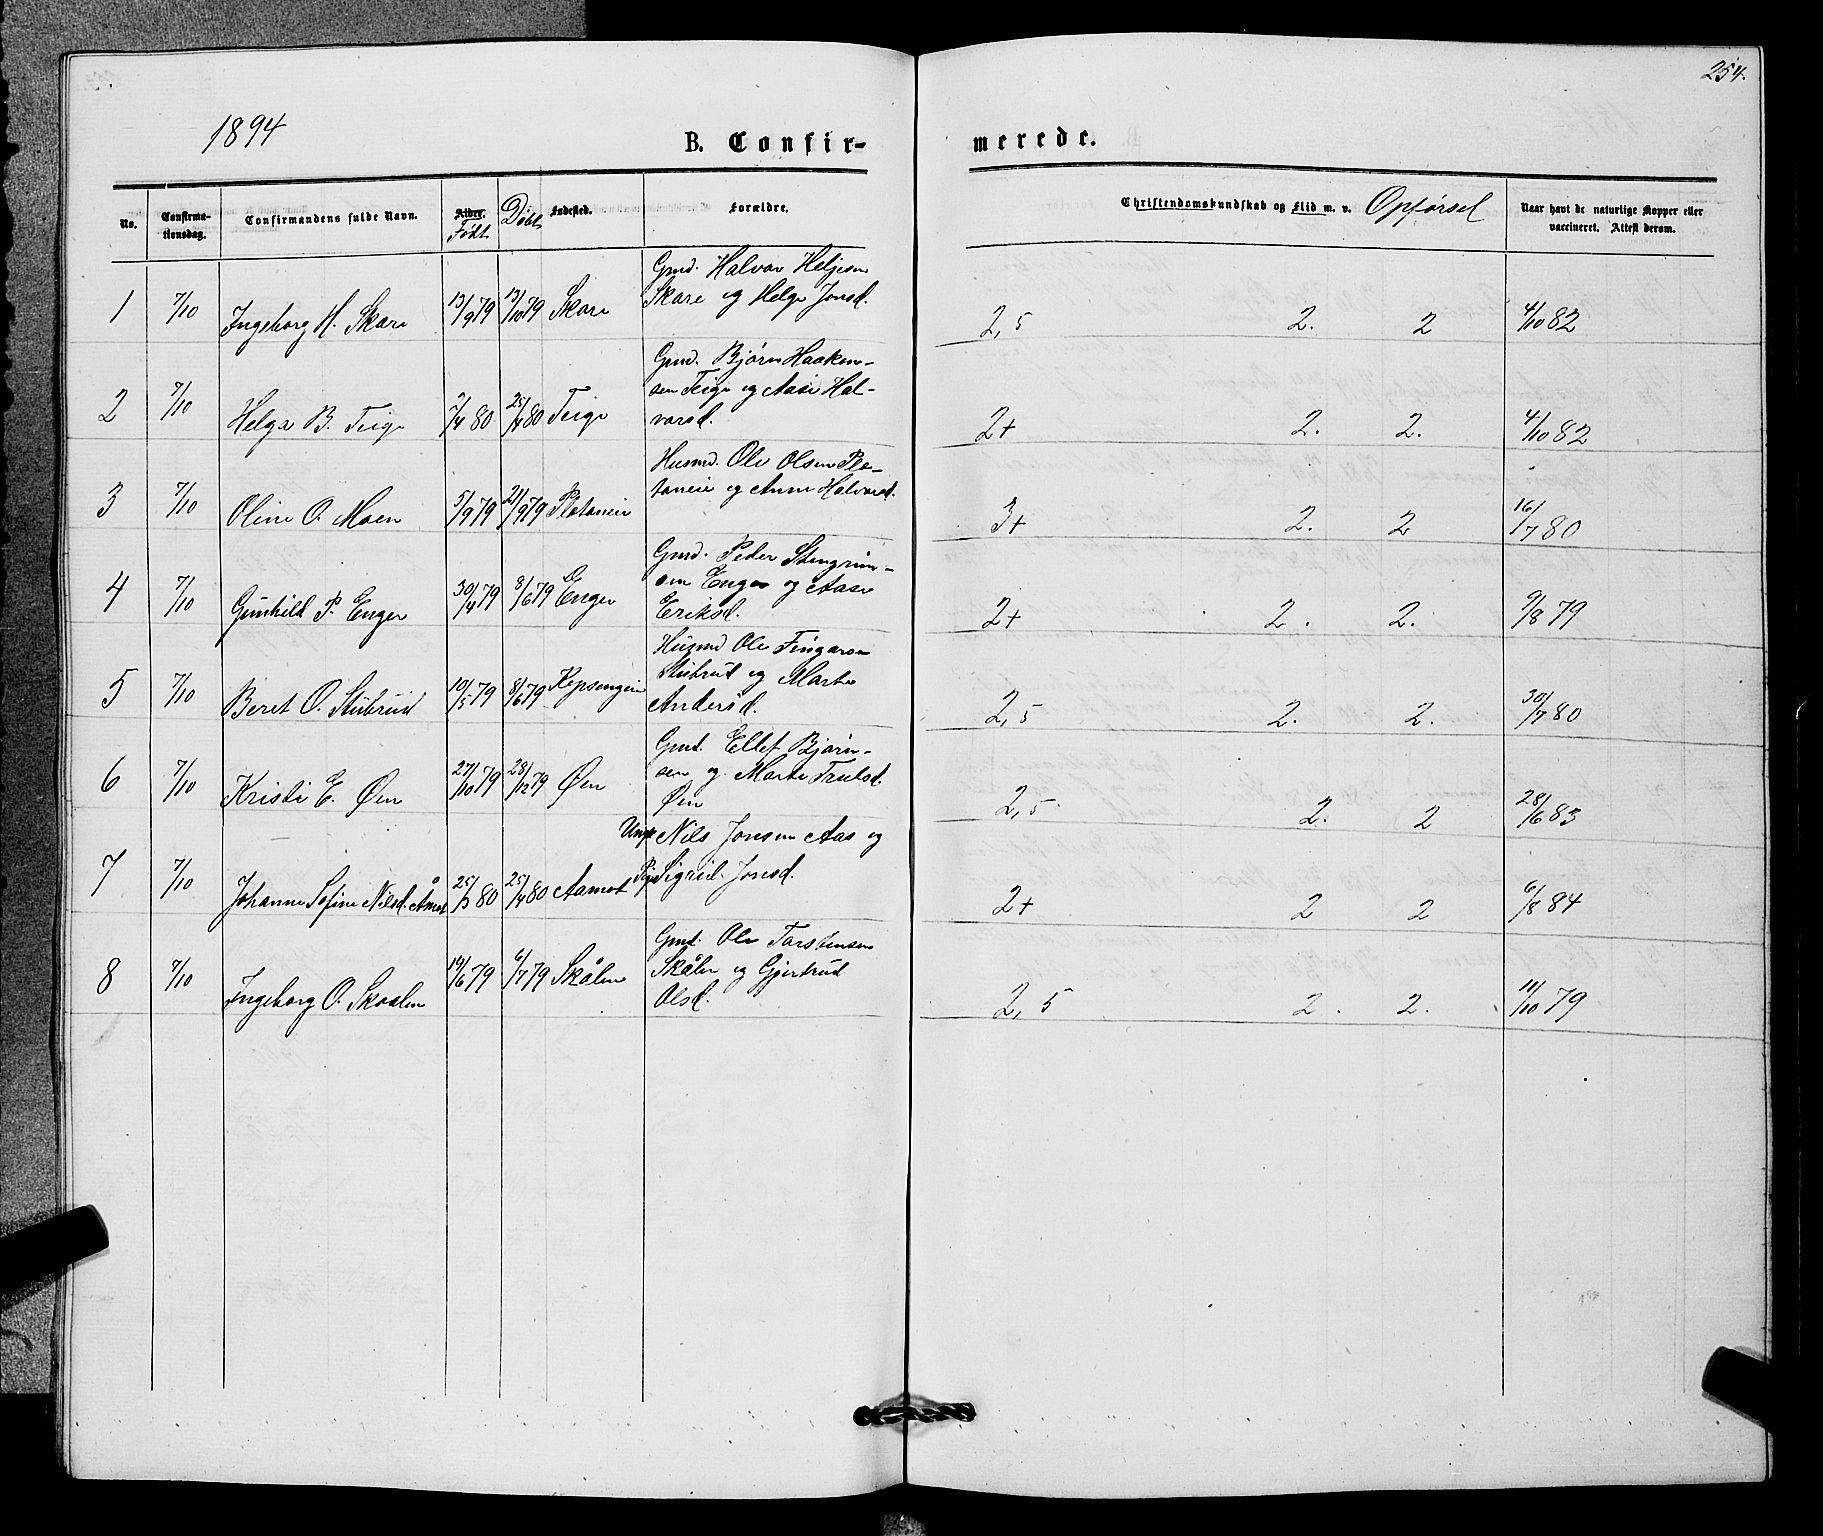 254.
1894
B. Confir-
merede.
No.
Confirma-
tionsdag.
Confirmandens fulde Navn.
Alder.
Født
Døbt
Fødested.
Forældre.
Christendomskundskab og Flid m. v. Opførsel
Naar havt de naturlige Kopper eller
vaccineret. Attest derom.
Gmd. Halvor Heljesen
1 7/10 Ingeborg H. Skare 13/9 79 13/10 79 Skare Skare og Helge Jonsd. 2,5 2. 2 4/10 82
Gmd. Bjørn Haaken-
sen Teige og Aase Hal-
2 7/10 Helga B. Teige 7/4 80 25/4 80 Teige vorsd. 2+ 2. 2. 4/10 82
Husmd. Ole Olsen Pla-
3 7/10 Oline O. Moen 5/9 79 21/9 79 Plataneie taneie og Anne Halvorsd. 3+ 2. 2 16/7 80
Gmd. Peder Stengrim-
sen Enger og Aase
4 7/10 Gunhild P. Enger 30/4 79 8/6 79 Enger Eriksd. 2+ 2. 2. 9/8 79
Husmd Ole Fingarsen
Stubrud og Marte
5 7/10 Beret O. Stubrud 10/5 79 8/6 79 Kopsengeie Andersd. 2,5 2. 2. 30/7 80
Gmd. Ellef Bjørn-
sen og Marte Trulsd.
6 7/10 Kristi E. Øen 27/10 79 28/12 79 Øen Øen 2,5. 2. 2 28/6 83
Ungk Nils Jonsen Aas og
7 7/10 Johanne Sofine Nilsd. Åmot 25/3 80 25/4 80 Aamot Pige Sigrid Jonsd. 2+ 2 2 6/8 84
Gmd. Ole Torstensen
Skålen og Gjertrud
8 7/10 Ingeborg O. Skaalen 19/6 79 6/7 79 Skålen Olsd. 2,5 2. 2. 11/10 79